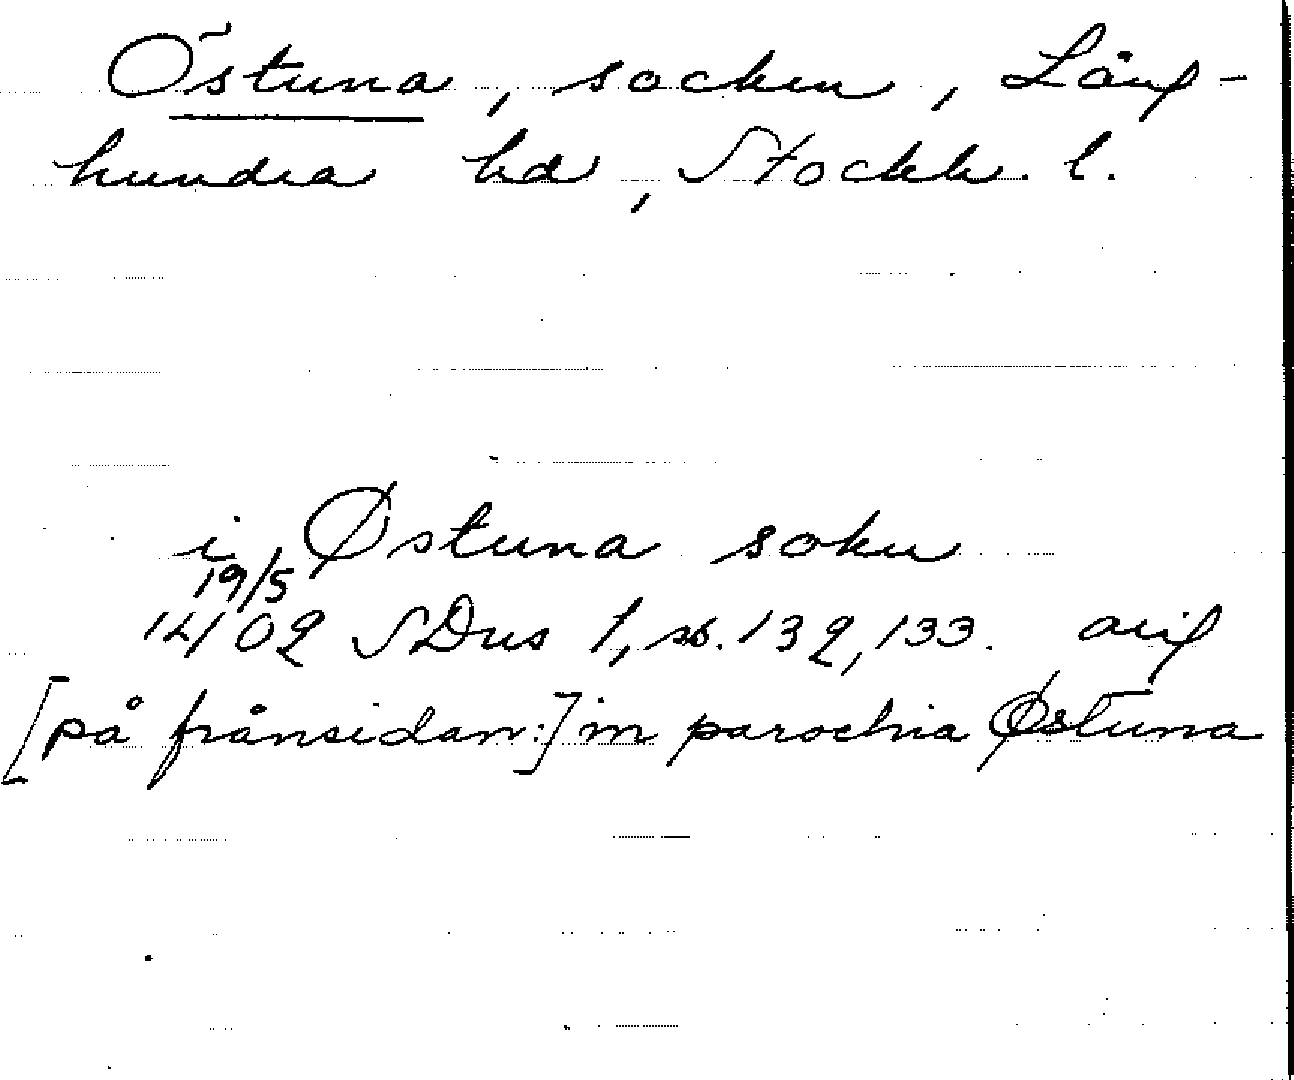 Östuna, socken, Lång-
hundra hd, Stockh. l.
i Østuna sokn
19/5
1402 SDns 1, ss. 132, 133. orig
[på frånsidan:] in parochia Østuna